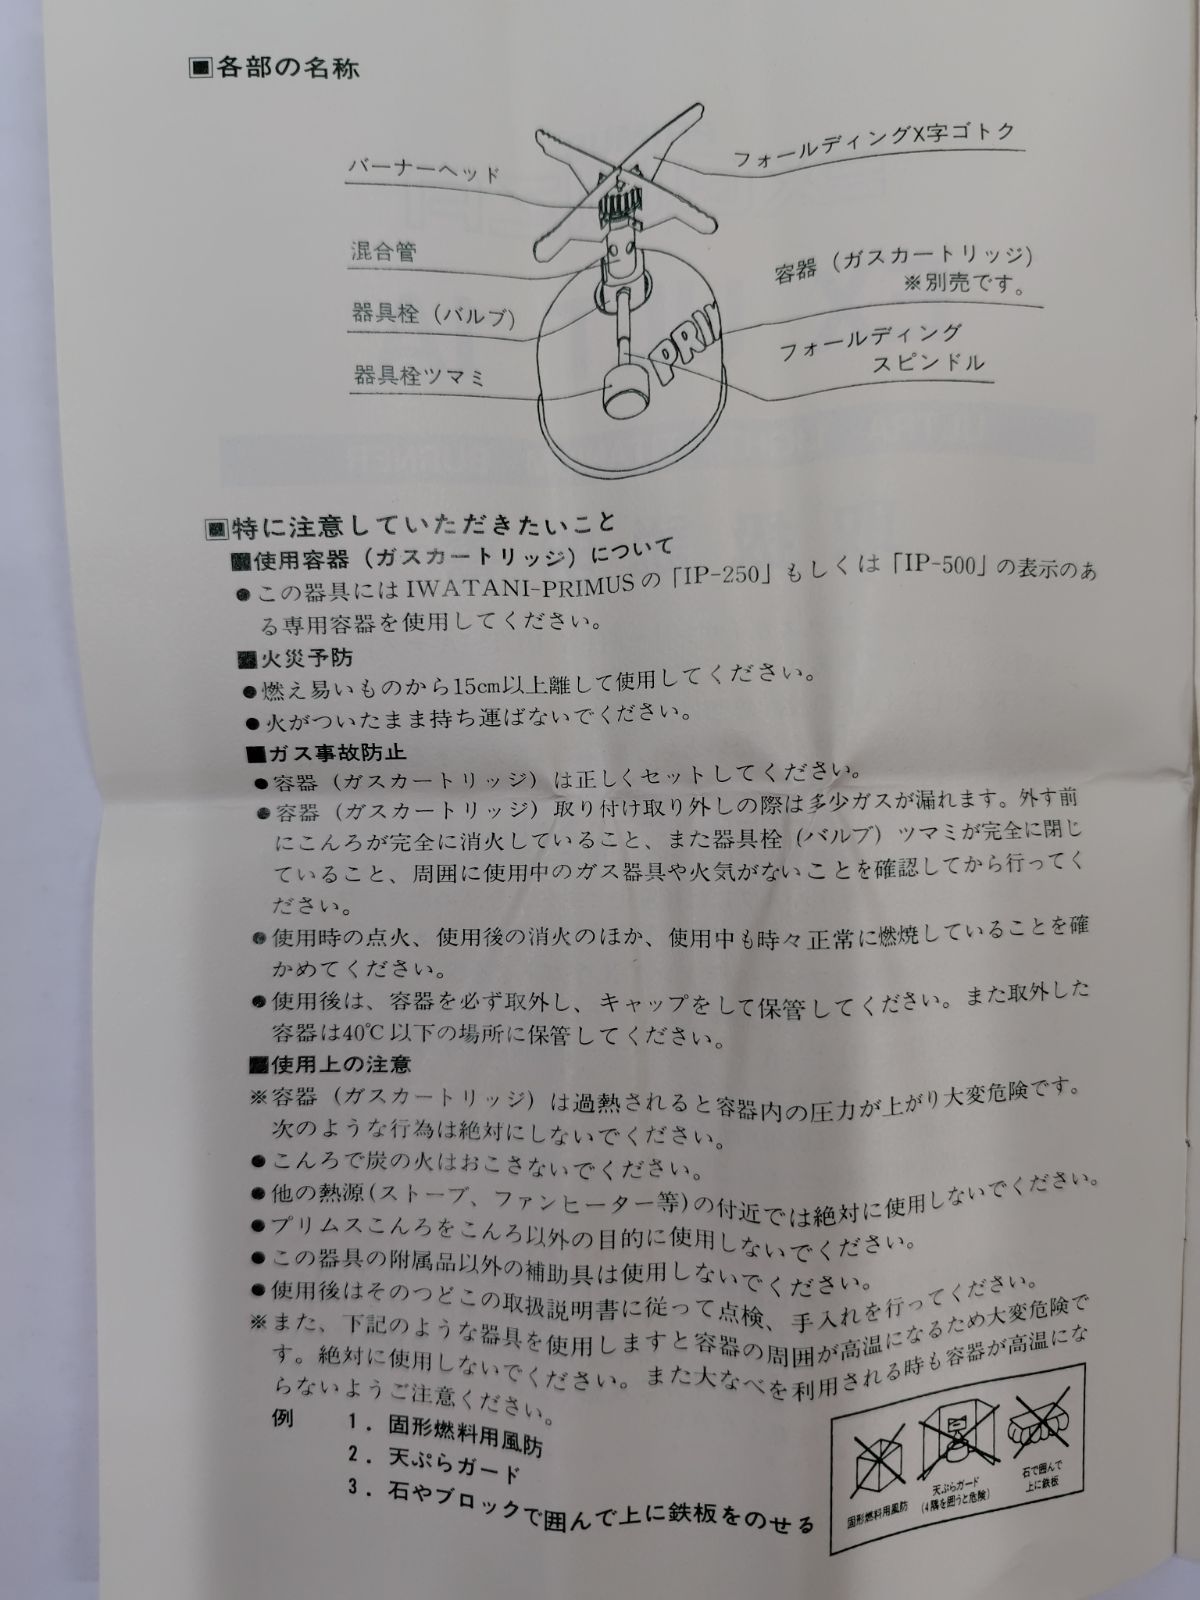 ■各部の名称
バーナーヘッド
混合管
器具栓（バルブ）
器具栓ツマミ
フォールディングX字ゴトク
容器（ガスカートリッジ）
※別売です。
フォールディング
スピンドル
PRIM
■特に注意していただきたいこと
■使用容器（ガスカートリッジ）について
●この器具にはIWATANI-PRIMUSの「IP-250」もしくは「IP-500」の表示のあ
る専用容器を使用してください。
■火災予防
●燃え易いものから15cm以上離して使用してください。
●火がついたまま持ち運ばないでください。
■ガス事故防止
●容器（ガスカートリッジ）は正しくセットしてください。
●容器（ガスカートリッジ）取り付け取り外しの際は多少ガスが漏れます。外す前
にこんろが完全に消火していること、また器具栓（バルブ）ツマミが完全に閉じ
ていること、周囲に使用中のガス器具や火気がないことを確認してから行ってく
ださい。
●使用時の点火、使用後の消火のほか、使用中も時々正常に燃焼していることを確
かめてください。
●使用後は、容器を必ず取外し、キャップをして保管してください。また取外した
容器は40℃以下の場所に保管してください。
■使用上の注意
※容器（ガスカートリッジ）は過熱されると容器内の圧力が上がり大変危険です。
次のような行為は絶対にしないでください。
●こんろで炭の火はおこさないでください。
●他の熱源(ストーブ、ファンヒーター等)の付近では絶対に使用しないでください。
●プリムスこんろをこんろ以外の目的に使用しないでください。
●この器具の附属品以外の補助具は使用しないでください。
●使用後はそのつどこの取扱説明書に従って点検、手入れを行ってください。
※また、下記のような器具を使用しますと容器の周囲が高温になるため大変危険で
す。絶対に使用しないでください。また大なべを利用される時も容器が高温にな
らないようご注意ください。
例 1．固形燃料用風防
2．天ぷらガード
3．石やブロックで囲んで上に鉄板をのせる
固形燃料用風防
天ぷらガード
(4隅を囲うと危険)
石で囲んで
上に鉄板